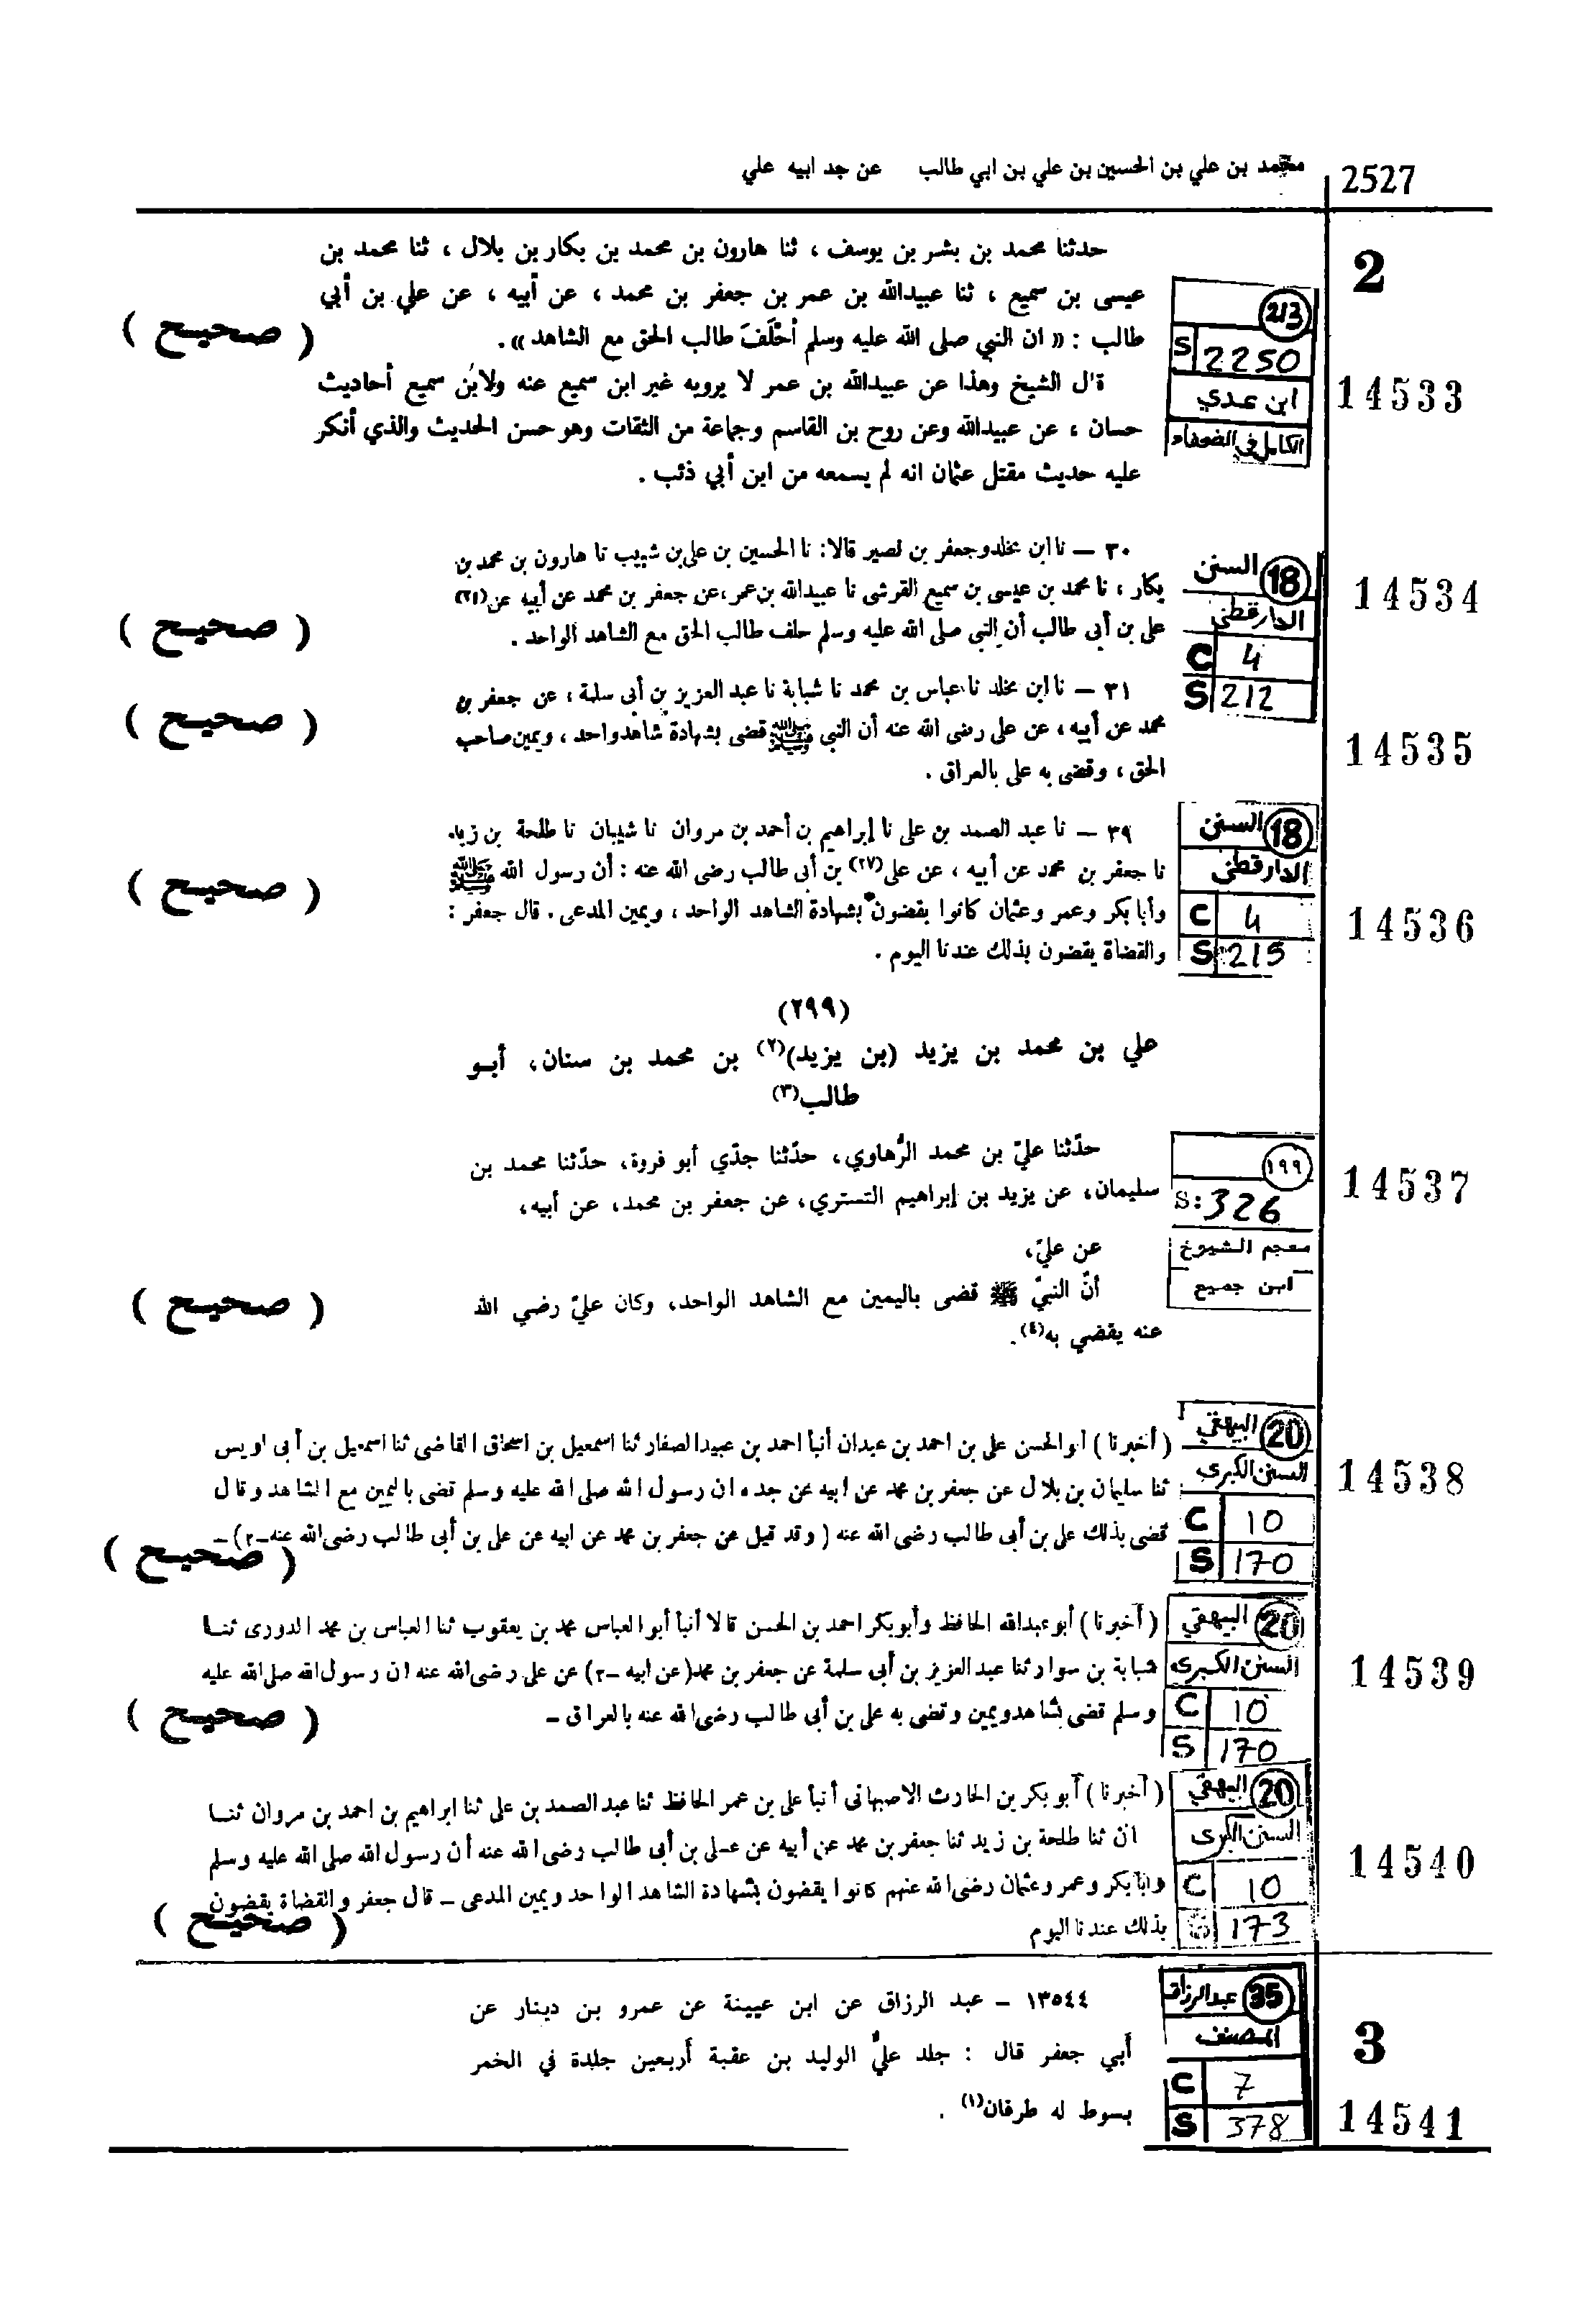 2527
محمد بن علي بن الحسين بن علي بن ابي طالب عن جد ابيه علي
2
حدثنا محمد بن بشر بن يوسف ، ثنا هارون بن محمد بن بكار بن بلال ، ثنا محمد بن
عيسى بن سميع ، ثنا عبيدالله بن عمر بن جعفر بن محمد ، عن أبيه ، عن علي بن أبي
طالب : « ان النبي صلى الله عليه وسلم أحْلَفَ طالب الحق مع الشاهد » .
قال الشيخ وهذا عن عبيدالله بن عمر لا يرويه غير ابن سميع عنه ولابن سميع أحاديث
حسان ، عن عبيدالله وعن روح بن القاسم وجماعة من الثقات وهو حسن الحديث والذي أنكر
عليه حديث مقتل عثمان انه لم يسمعه من ابن أبي ذئب .
( صحيح )
213
S 2250
ابن عدي
الكامل في الضعفاء
14533
٣٠ – نا ابن مخلد وجعفر بن نصير قالا: نا الحسين بن على بن شبيب نا هارون بن محمد بن
بكار ، نا محمد بن عيسى بن سميع القرشى نا عبيدالله بن عمر ،عن جعفر بن محمد عن أبيه عن(٢١)
على بن أبى طالب أن النبى صلى الله عليه وسلم حلف طالب الحق مع الشاهد الواحد .
( صحيح )
السنن 18
الدارقطني
C 4
S 212
14534
٣١ – نا ابن مخلد نا عباس بن محمد نا شبابة نا عبد العزيز بن أبى سلمة ، عن جعفر بن
محمد عن أبيه ، عن على رضى الله عنه أن النبى ﷺ قضى بشهادة شاهد واحد ، ويمين صاحب
الحق ، وقضى به على بالعراق .
( صحيح )
14535
٣٩ – نا عبد الصمد بن على نا إبراهيم بن أحمد بن مروان نا شيبان نا طلحة بن زيد
نا جعفر بن محمد عن أبيه ، عن على(٢٧) بن أبى طالب رضى الله عنه : أن رسول الله ﷺ
وأبا بكر وعمر وعثمان كانوا يقضون بشهادة الشاهد الواحد ، ويمين المدعى . قال جعفر :
والقضاة يقضون بذلك عندنا اليوم .
( صحيح )
السنن 18
الدارقطني
C 4
S 215
14536
(٢٩٩)
علي بن محمد بن يزيد (بن يزيد)(٢) بن محمد بن سنان، أبو
طالب(٣)
حدّثنا عليّ بن محمد الرُّهاوي، حدّثنا جدّي أبو فروة، حدّثنا محمد بن
سليمان، عن يزيد بن إبراهيم التستري، عن جعفر بن محمد، عن أبيه،
عن عليّ،
أنّ النبيّ ﷺ قضى باليمين مع الشاهد الواحد، وكان عليّ رضي الله
عنه يقضي به(٤).
( صحيح )
١٩٩
S: 326
معجم الشيوخ
ابن جميع
14537
( أخبرنا ) ابو الحسن على بن احمد بن عبدان أنبأ احمد بن عبيد الصفار ثنا اسمعيل بن اسحاق القاضى ثنا اسمعيل بن أبى اويس
ثنا سليمان بن بلال عن جعفر بن محمد عن ابيه عن جده ان رسول الله صلى الله عليه وسلم قضى باليمين مع الشاهد وقال
قضى بذلك على بن أبى طالب رضى الله عنه ( وقد قيل عن جعفر بن محمد عن ابيه عن على بن أبى طالب رضى الله عنه-٢ ) –
( صحيح )
البيهقي 20
السنن الكبرى
C 10
S 170
14538
( أخبرنا ) أبو عبدالله الحافظ وأبو بكر احمد بن الحسن قالا أنبأ أبو العباس محمد بن يعقوب ثنا العباس بن محمد الدورى ثنا
شبابة بن سوار ثنا عبد العزيز بن أبى سلمة عن جعفر بن محمد (عن ابيه -٢) عن على رضى الله عنه ان رسول الله صلى الله عليه
وسلم قضى بشاهد ويمين وقضى به على بن أبى طالب رضى الله عنه بالعراق –
( صحيح )
البيهقي 20
السنن الكبرى
C 10
S 170
14539
( أخبرنا ) أبو بكر بن الحارث الاصبهانى أنبأ على بن عمر الحافظ ثنا عبد الصمد بن على ثنا ابراهيم بن احمد بن مروان ثنا
ان ثنا طلحة بن زيد ثنا جعفر بن محمد عن أبيه عن على بن أبى طالب رضى الله عنه أن رسول الله صلى الله عليه وسلم
وابا بكر وعمر وعثمان رضى الله عنهم كانوا يقضون بشهادة الشاهد الواحد ويمين المدعى – قال جعفر والقضاة يقضون
بذلك عندنا اليوم
( صحيح )
البيهقي 20
السنن الكبرى
C 10
173
14540
3
١٣٥٤٤ – عبد الرزاق عن ابن عيينة عن عمرو بن دينار عن
أبي جعفر قال : جلد عليٌّ الوليد بن عقبة أربعين جلدة في الخمر
بسوط له طرفان(١) .
عبدالرزاق 35
المصنف
C 7
S 378
14541